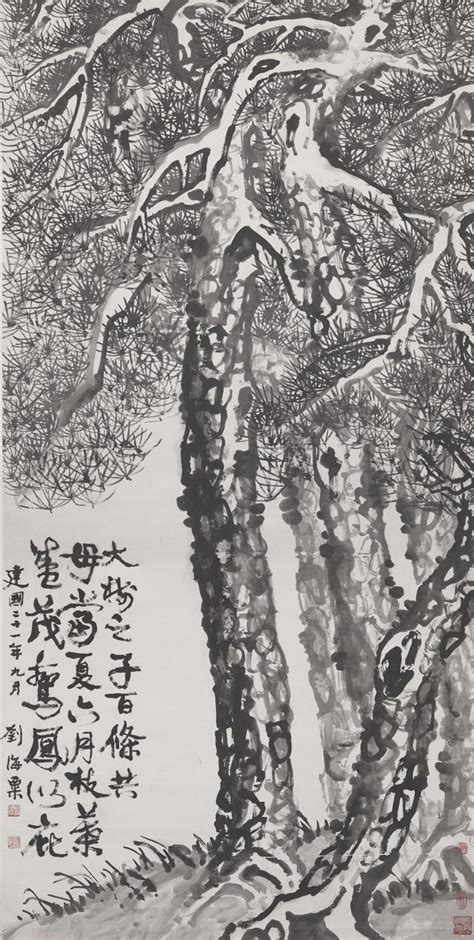 大樹之子百條共
母當夏六月枝葉
盛茂鸞鳳以庇
建國二十一年九月 劉海粟